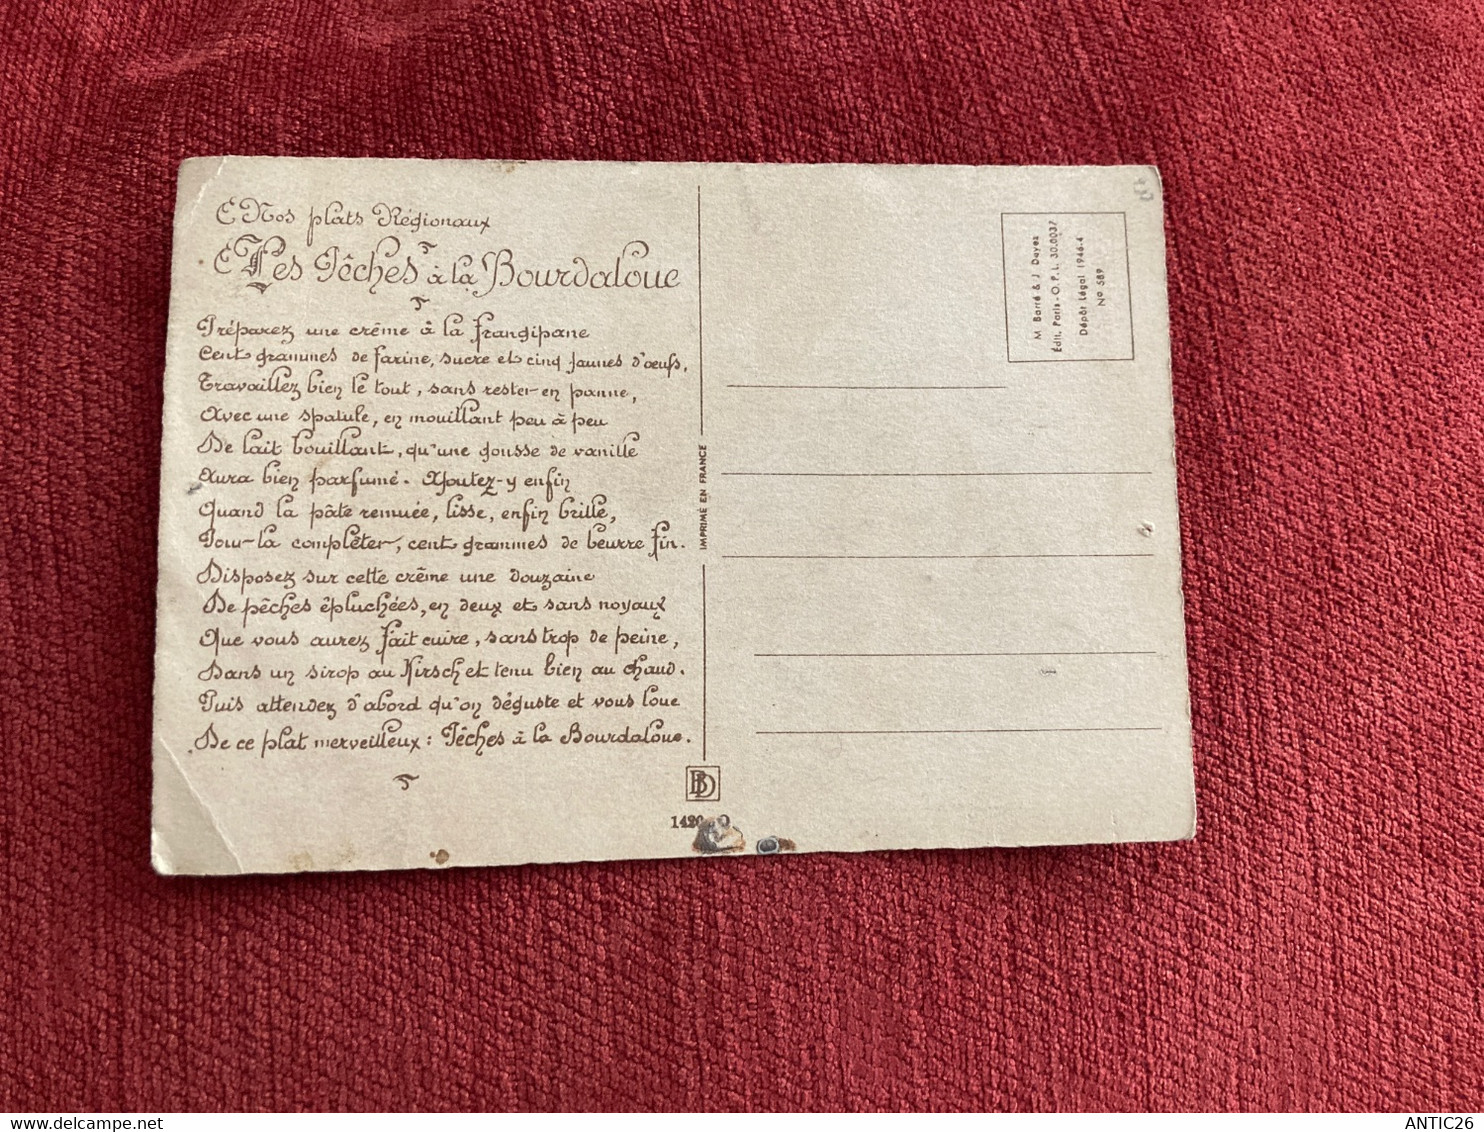 Nos plats Régionaux
Les Pêches à la Bourdaloue
Préparez une crême à la frangipane
Cent grammes de farine, sucre et cinq jaunes d'œufs,
Travaillez bien le tout, sans rester en panne,
Avec une spatule, en mouillant peu à peu
De lait bouillant, qu'une gousse de vanille
Aura bien parfumé. Ajoutez-y enfin
Quand la pâte remuée, lisse, enfin brille,
Pour la compléter, cent grammes de beurre fin.
Disposez sur cette crême une douzaine
De pêches épluchées, en deux et sans noyaux
Que vous aurez fait cuire, sans trop de peine,
Dans un sirop au Kirsch et tenu bien au chaud.
Puis attendez d'abord qu'on déguste et vous loue
De ce plat merveilleux : Pêches à la Bourdaloue.
IMPRIMÉ EN FRANCE
BD
1420
M. Barré & J. Dayez
Édit. Paris - O.P.L. 30.0037
Dépôt Légal 1946-4
No 589
ANTIC26